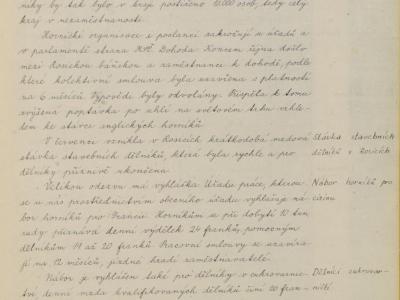 níky by tak bylo v kraji postiženo 10.000 osob, tedy celý
kraj v nezaměstnanosti.
Hornické organisace s poslanci zakročují u úřadů a
v parlamentě strana Dohoda. Koncem října došlo
mezi Rosickou báňskou a zaměstnanci k dohodě, podle
které kolektivní smlouva byla uzavřena s platností
na 6 měsíců. Výpovědi byly odvolány. Přispěla k tomu
zvýšená poptávka po uhlí na světovém trhu vzhle-
dem ke stávce anglických horníků.
V červenci vznikla v Rosicích krátkodobá mzdová
stávka stavebních dělníků, která byla rychle a pro
dělníky příznivě ukončena.
Stávka stavebních
dělníků v Rosicích
Velikou odezvu má vyhláška Úřadu práce, kterou
se u nás prostřednictvím obecního úřadu vyhlašuje ná-
bor horníků pro Francii. Horníkům se při dobytí 10 tun
rudy přiznává denní výdělek 24 franků, pomocným
dělníkům 19 až 20 franků. Pracovní smlouvy se uzavíra-
jí na 12 měsíců, jízdné hradí zaměstnavatelé.
Nábor horníků do
ciziny
Nábor je vyhlášen také pro dělníky v cukrovarnic-
tví denní mzda kvalifikovaných dělníků činí 20 fran-
Dělníci cukrovar-
ničtí